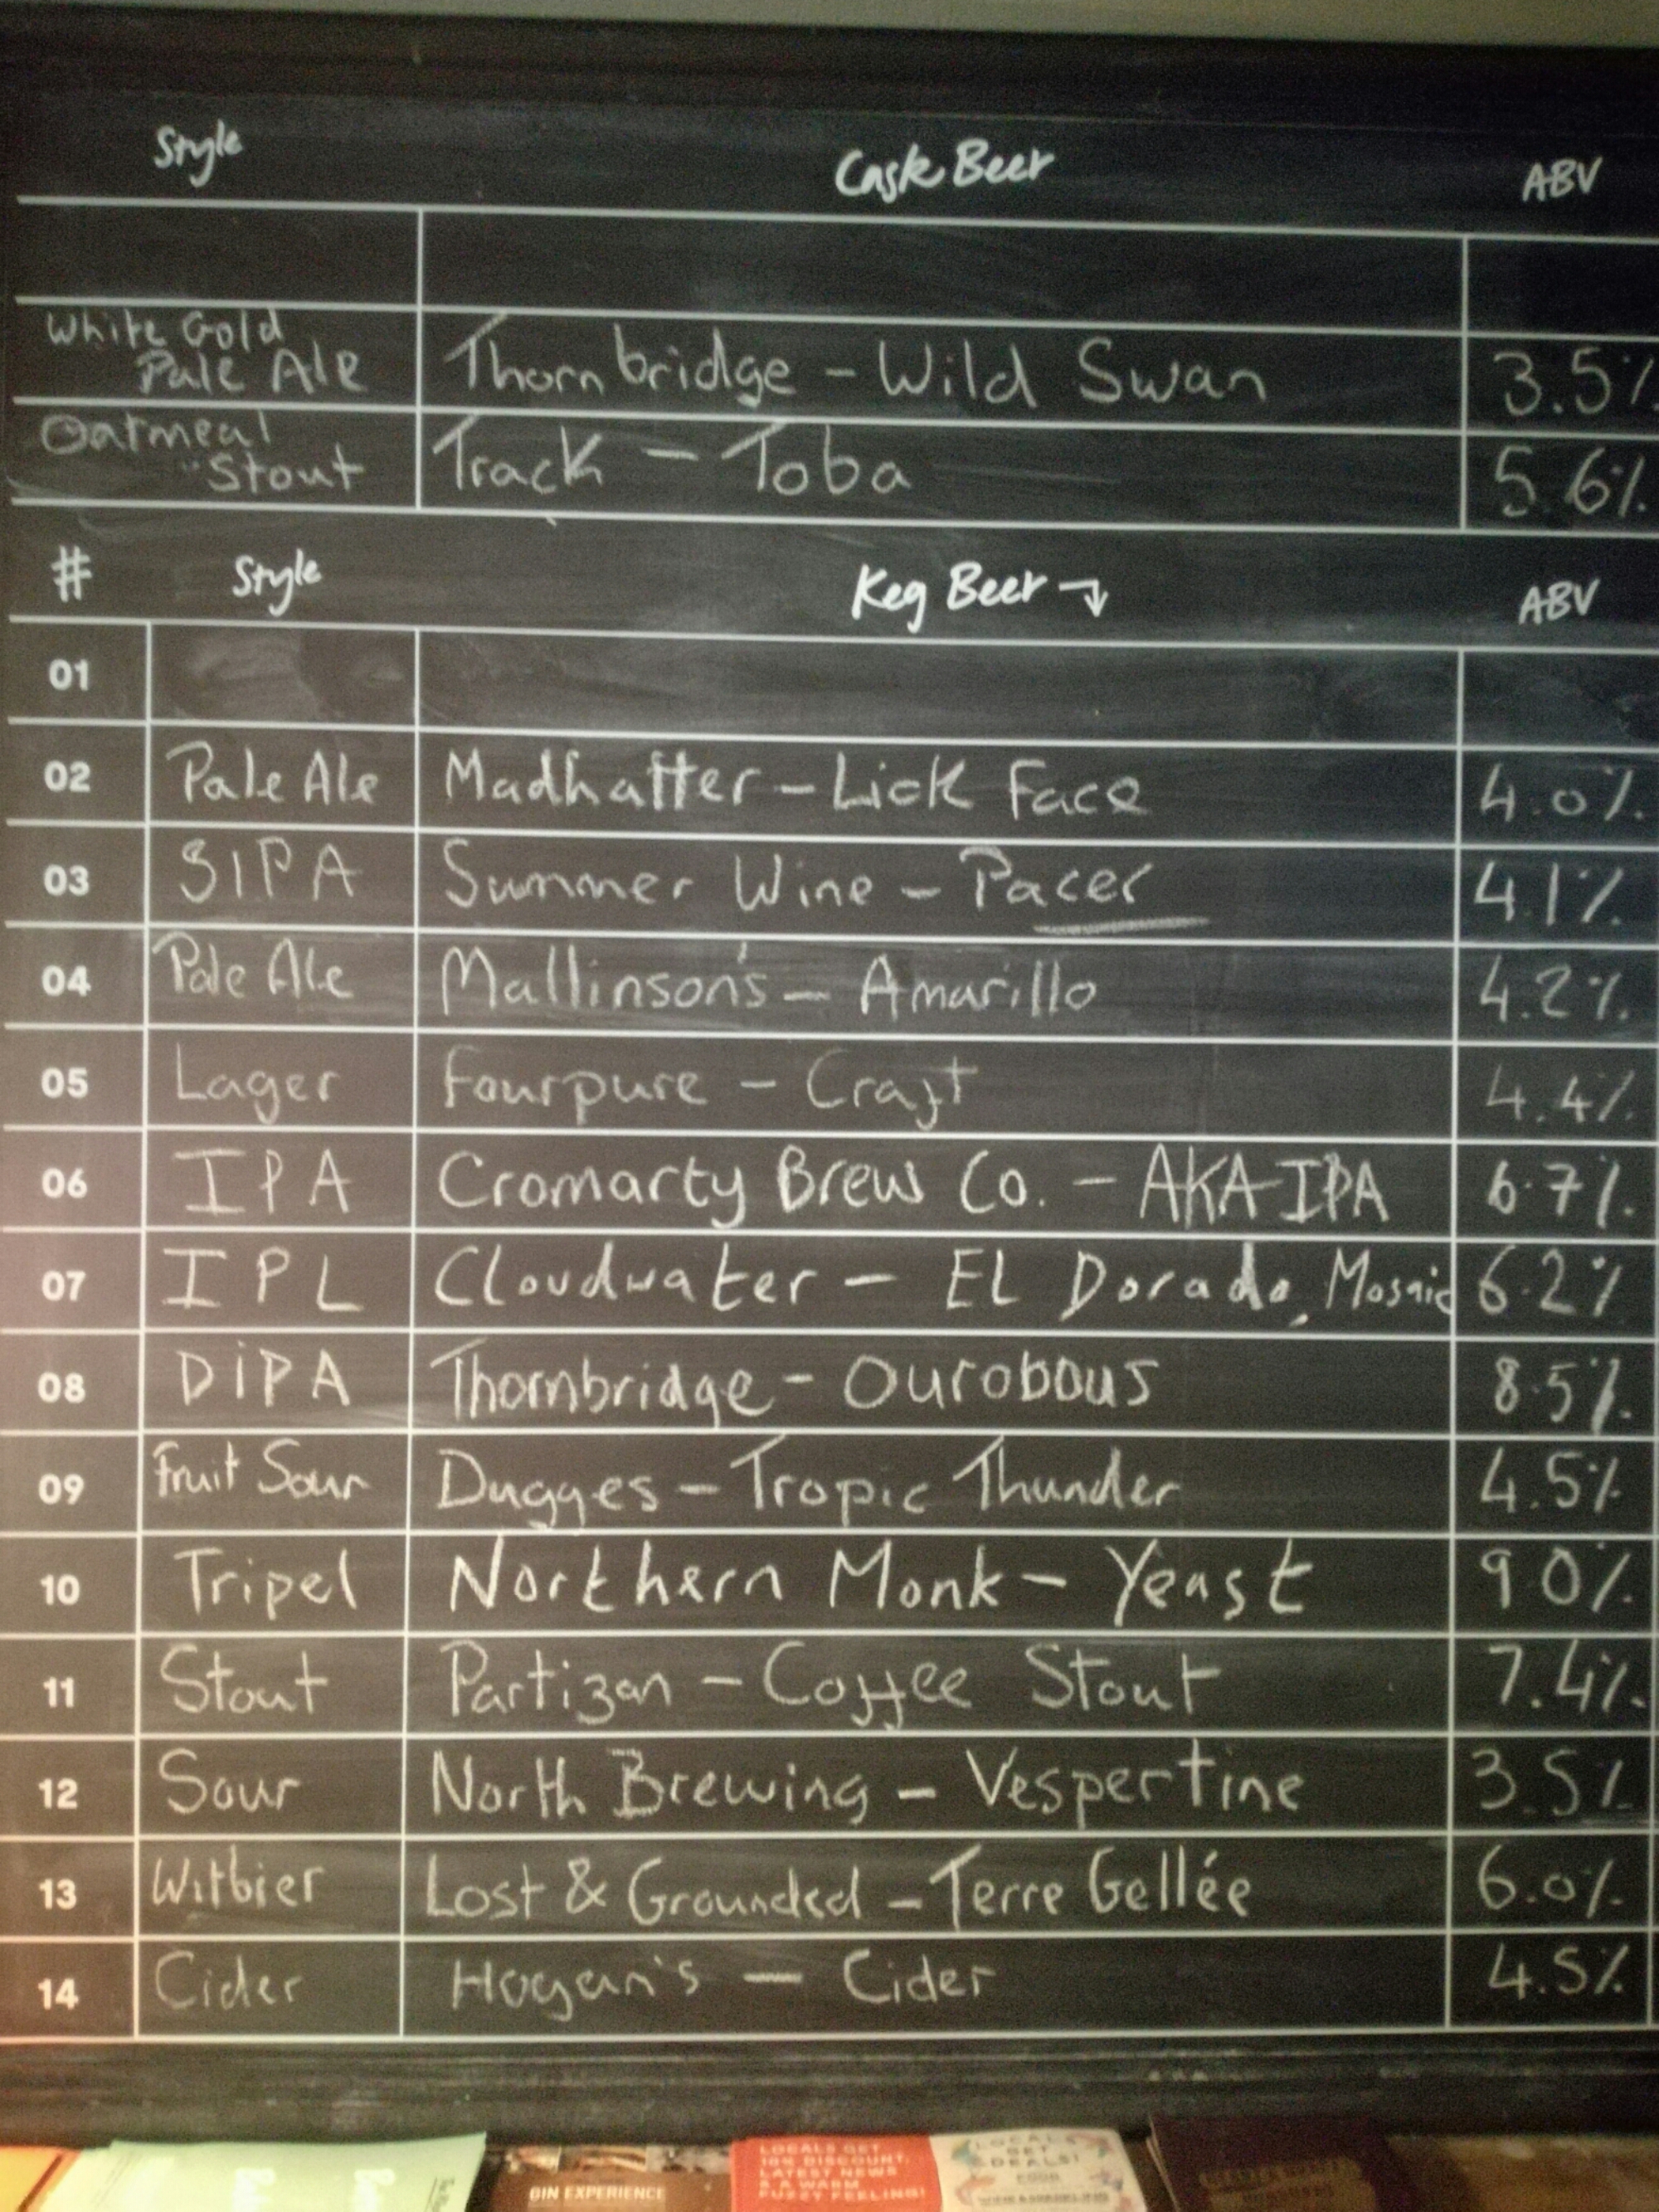 Style Cask Beer ABV
White Gold
Pale Ale Thornbridge - Wild Swan 3.5%
Oatmeal
Stout Track - Toba 5.6%
# Style Keg Beer ABV
01
02 Pale Ale Madhatter - Lick Face 4.0%
03 SIPA Summer Wine - Pacer 4.1%
04 Pale Ale Mallinson's - Amarillo 4.2%
05 Lager Fourpure - Craft 4.4%
06 IPA Cromarty Brew Co. - AKA IPA 6.7%
07 IPL Cloudwater - EL Dorado, Mosaic 6.2%
08 DIPA Thornbridge - Ourobous 8.5%
09 Fruit Sour Dugges - Tropic Thunder 4.5%
10 Tripel Northern Monk - Yeast 9.0%
11 Stout Partizan - Coffee Stout 7.4%
12 Sour North Brewing - Vespertine 3.5%
13 Witbier Lost & Grounded - Terre Gellée 6.0%
14 Cider Hogan's - Cider 4.5%
GIN EXPERIENCE
LOCALS GET
10% DISCOUNT,
LATEST NEWS
& A WARM
FUZZY FEELING!
LOCALS
GET
DEALS!